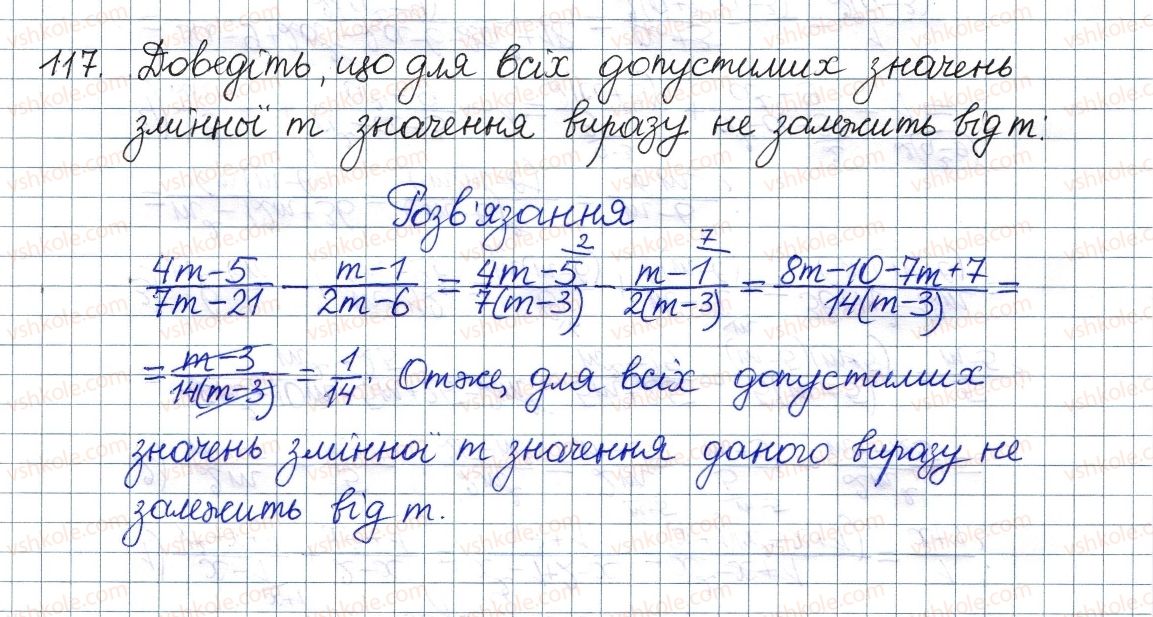 117. Доведіть, що для всіх допустимих значень
змінної m значення виразу не залежить від m:
Розв'язання
(4m-5)/(7m-21) - (m-1)/(2m-6) = (4m-5)/(7(m-3)) ^2 - (m-1)/(2(m-3)) ^7 = (8m-10-7m+7)/(14(m-3)) =
= (m-3)/(14(m-3)) = 1/14. Отже, для всіх допустимих
значень змінної m значення даного виразу не
залежить від m.